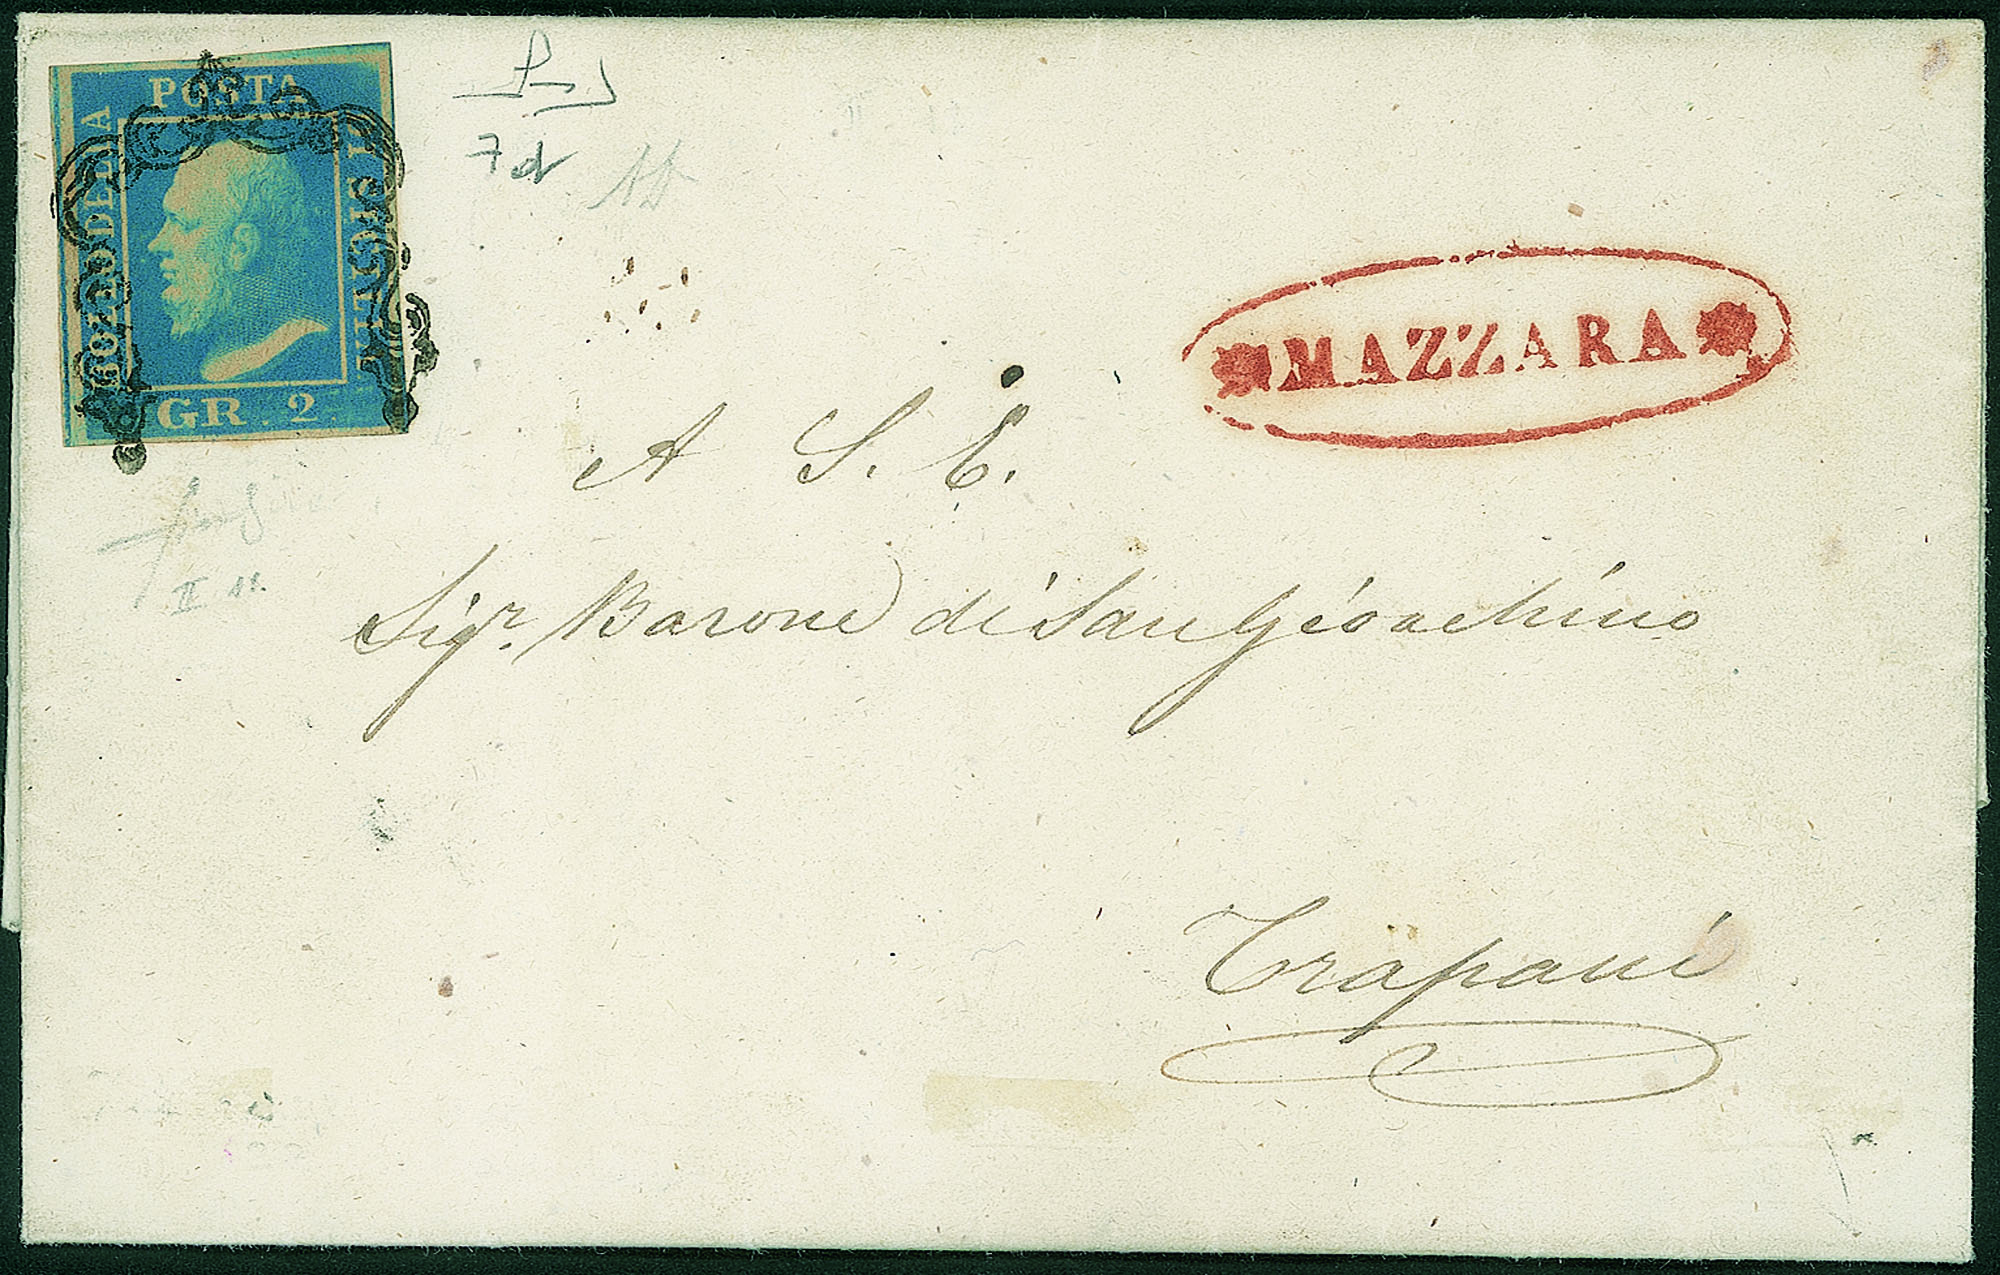 POSTA
BOLLO DELLA
DI SICILIA
GR. 2.
7d
MAZZARA
A S. E.
Sigr. Barone di San Gioachino
II
Trapani